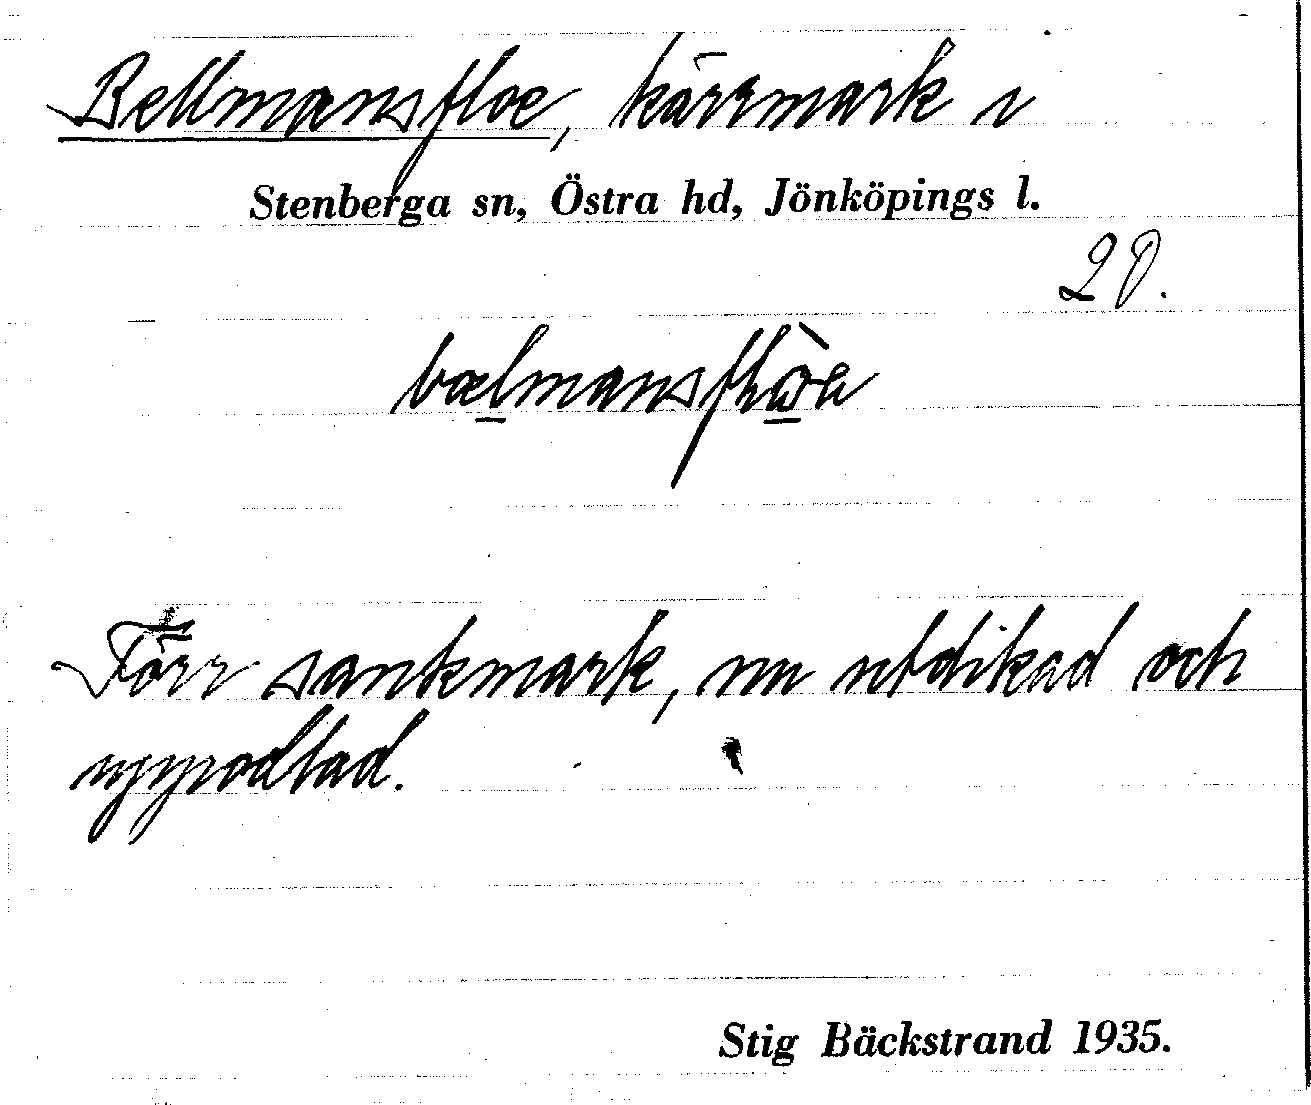 Bellmansfloe, kärrmark i
Stenberga sn, Östra hd, Jönköpings l.
20.
Förr sankmark, nu utdikad och
uppodlad.
Stig Bäckstrand 1935.